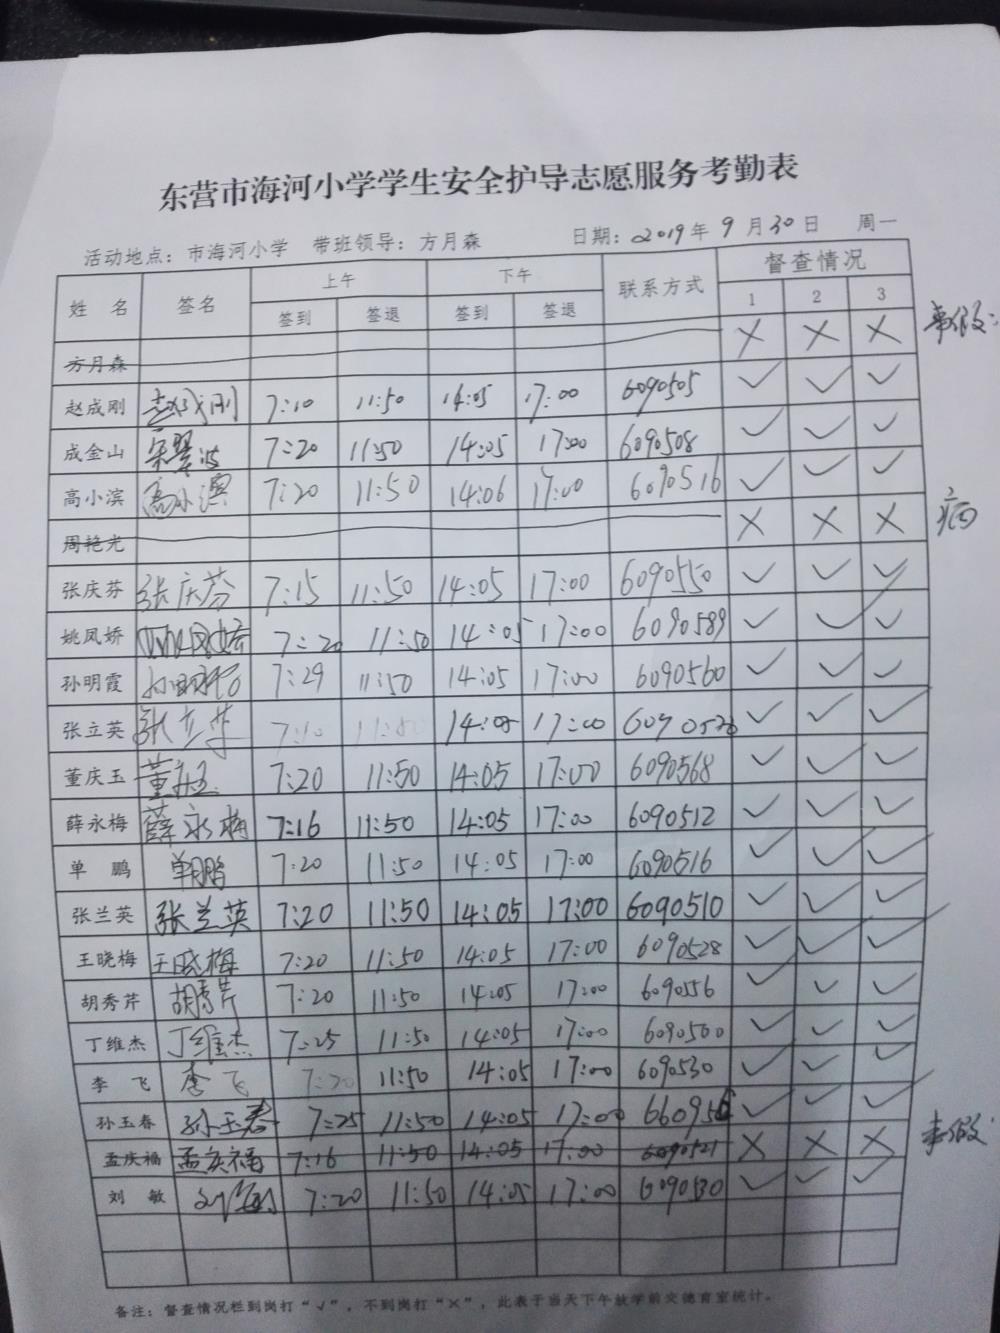 东营市海河小学学生安全护导志愿服务考勤表
活动地点：市海河小学 带班领导：方月森 日期：2019年9月30日 周一
姓 名 签名 上午 下午 联系方式 督查情况
签到 签退 签到 签退 1 2 3
方月森 × × × 事假:
赵成刚 赵成刚 7:10 11:50 14:05 17:00 6090505 ✓ ✓ ✓
成金山 7:20 11:50 14:05 17:00 6090508 ✓ ✓ ✓
高小滨 高小滨 7:20 11:50 14:06 17:00 6090516 ✓ ✓ ✓
周艳光 × × × 病
张庆芬 张庆芬 7:15 11:50 14:05 17:00 6090550 ✓ ✓ ✓
姚凤娇 姚凤娇 7:20 11:50 14:05 17:00 6090589 ✓ ✓ ✓
孙明霞 孙明霞 7:29 11:50 14:05 17:00 6090560 ✓ ✓ ✓
张立英 张立英 7:10 11:50 14:05 17:00 ✓ ✓ ✓
董庆玉 董庆玉 7:20 11:50 14:05 17:00 6090568 ✓ ✓ ✓
薛永梅 薛永梅 7:16 11:50 14:05 17:00 6090512 ✓ ✓ ✓
单 鹏 单鹏 7:20 11:50 14:05 17:00 6090516 ✓ ✓ ✓
张兰英 张兰英 7:20 11:50 14:05 17:00 6090510 ✓ ✓ ✓
王晓梅 王晓梅 7:20 11:50 14:05 17:00 6090528 ✓ ✓ ✓
胡秀芹 胡秀芹 7:20 11:50 14:05 17:00 6090556 ✓ ✓ ✓
丁维杰 丁维杰 7:25 11:50 14:05 17:00 6090500 ✓ ✓ ✓
李 飞 李飞 7:20 11:50 14:05 17:00 6090530 ✓ ✓ ✓
孙玉春 孙玉春 7:25 11:50 14:05 17:00 ✓ ✓ ✓
孟庆福 孟庆福 7:16 11:50 14:05 17:00 6090521 × × × 事假
刘 敏 刘敏 7:20 11:50 14:05 17:00 6090530 ✓ ✓ ✓
备注：督查情况栏到岗打“√”，不到岗打“×”，此表于当天下午放学前交德育室统计。